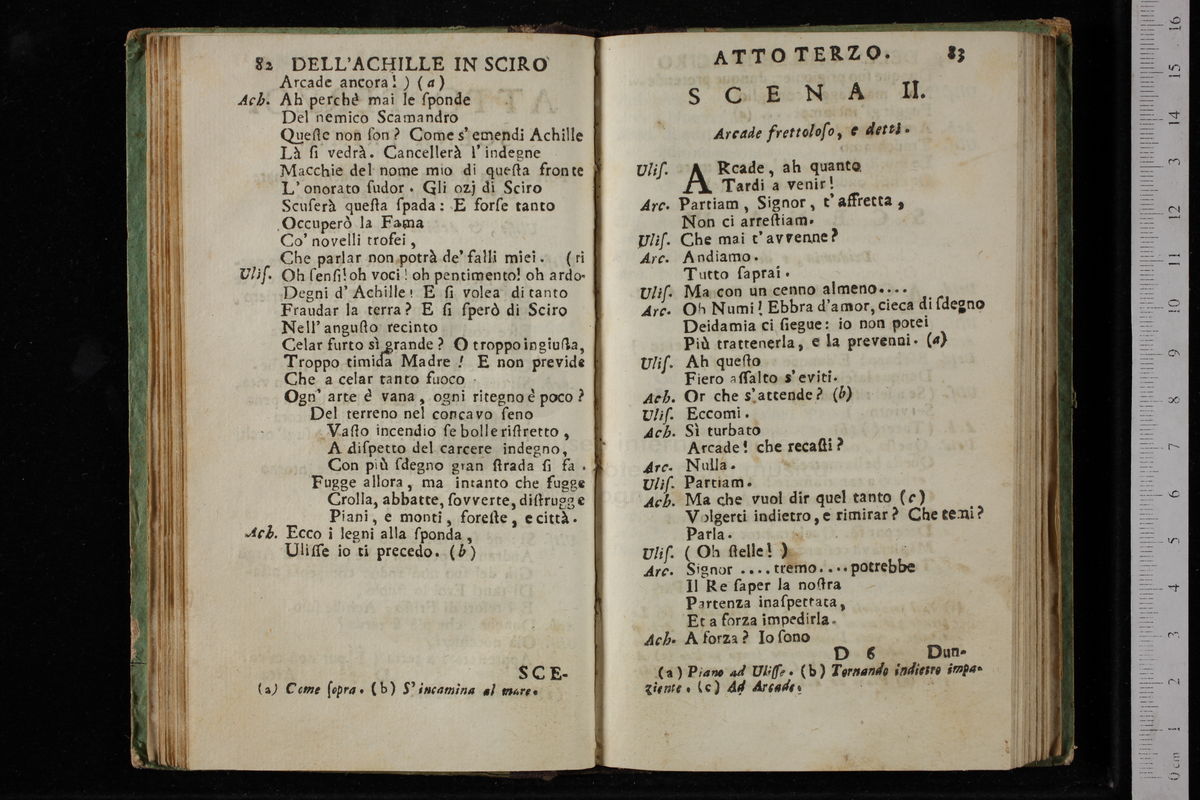 82 DELL'ACHILLE IN SCIRO
Arcade ancora! ) (a)
Ach. Ah perchè mai le ſponde
Del nemico Scamandro
Queſte non ſon? Come s'emendi Achille
Là ſi vedrà. Cancellerà l'indegne
Macchie del nome mio di queſta fronte
L'onorato ſudor. Gli ozj di Sciro
Scuſerà queſta ſpada: E forſe tanto
Occuperò la Fama
Co' novelli trofei,
Che parlar non potrà de' falli miei. (ri
Uliſ. Oh ſenſi! oh voci! oh pentimento! oh ardo-
Degni d'Achille! E ſi volea di tanto
Fraudar la terra? E ſi ſperò di Sciro
Nell' anguſto recinto
Celar furto sì grande? O troppo ingiuſta,
Troppo timida Madre! E non previde
Che a celar tanto fuoco
Ogn' arte è vana, ogni ritegno è poco?
Del terreno nel concavo ſeno
Vaſto incendio ſe bolle riſtretto,
A diſpetto del carcere indegno,
Con più ſdegno gran ſtrada ſi fa.
Fugge allora, ma intanto che fugge
Crolla, abbatte, ſovverte, diſtrugge
Piani, e monti, foreſte, e città.
Ach. Ecco i legni alla ſponda,
Uliſſe io ti precedo. (b)
SCE-
(a) Come ſopra. (b) S'incamina al mare.
ATTO TERZO. 83
SCENA II.
Arcade frettoloſo, e detti.
Uliſ. ARcade, ah quanto
Tardi a venir!
Arc. Partiam, Signor, t'affretta,
Non ci arreſtiam.
Uliſ. Che mai t'avvenne?
Arc. Andiamo.
Tutto ſaprai.
Uliſ. Ma con un cenno almeno....
Arc. Oh Numi! Ebbra d'amor, cieca di ſdegno
Deidamia ci ſiegue: io non potei
Più trattenerla, e la prevenni. (a)
Uliſ. Ah queſto
Fiero aſſalto s'eviti.
Ach. Or che s'attende? (b)
Uliſ. Eccomi.
Ach. Sì turbato
Arcade! che recaſti?
Arc. Nulla.
Uliſ. Partiam.
Ach. Ma che vuol dir quel tanto (c)
Volgerti indietro, e rimirar? Che temi?
Parla.
Uliſ. (Oh ſtelle!)
Arc. Signor ....tremo....potrebbe
Il Re ſaper la noſtra
Partenza inaſpettata,
Et a forza impedirla.
Ach. A forza? Io ſono
D 6 Dun-
(a) Piano ad Uliſſe. (b) Tornando indietro impa-
ziente. (c) Ad Arcade.
16
15
14
13
12
11
10
9
8
7
6
5
4
3
2
1
0 cm